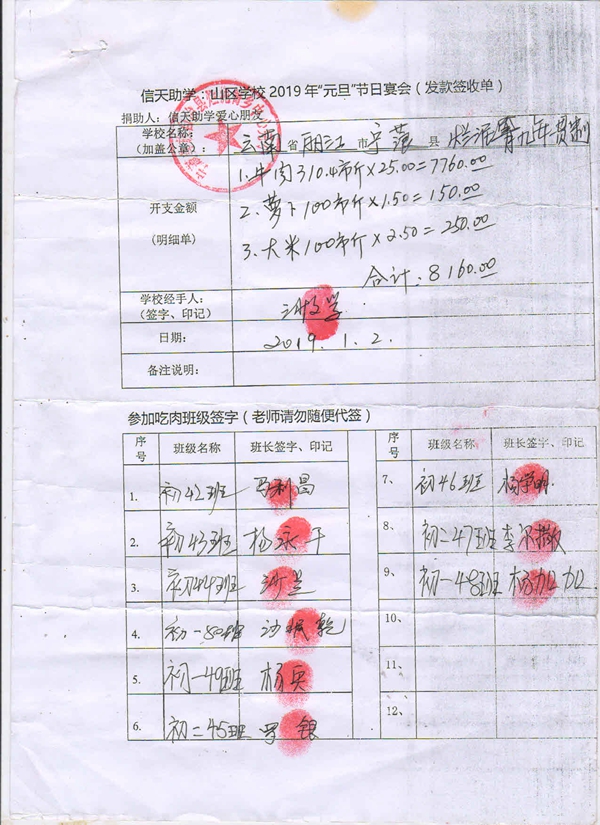 信天助学：山区学校2019年“元旦”节日宴会（发款签收单）
捐助人：信天助学爱心朋友
学校名称：
（加盖公章）：
云南省丽江市宁蒗县烂泥箐九年一贯制
开支金额
（明细单）
1.牛肉310.4市斤×25.00=7760.00
2.萝卜100市斤×1.50=150.00
3.大米100市斤×2.50=250.00
合计：8160.00
学校经手人：
（签字、印记）
日期：
2019.1.2.
备注说明：
参加吃肉班级签字（老师请勿随便代签）
序号 班级名称 班长签字、印记
1. 初42班 马利昌
2. 初43班 杨永干
3. 初44班
4. 初一50班
5. 初一49班 杨兵
6. 初二45班 银
序号 班级名称 班长签字、印记
7、 初46班 杨学明
8、 初二47班 李尔撒
9、 初一48班 杨加加
10、
11、
12、